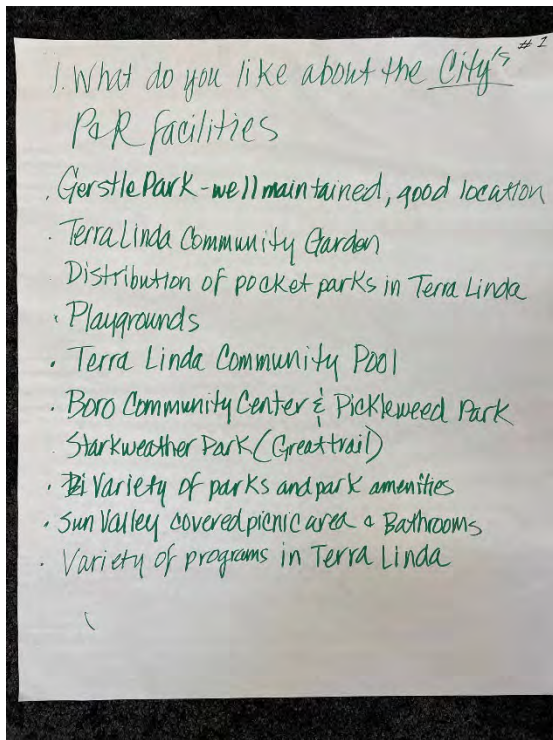 #1
1. What do you like about the City's
P&R facilities
. Gerstle Park - well maintained, good location
. Terra Linda Community Garden
Distribution of pocket parks in Terra Linda
. Playgrounds
. Terra Linda Community Pool
. Boro Community Center & Pickleweed Park
Starkweather Park (Great trail)
. Variety of parks and park amenities
. Sun Valley covered picnic area & Bathrooms
. Variety of programs in Terra Linda